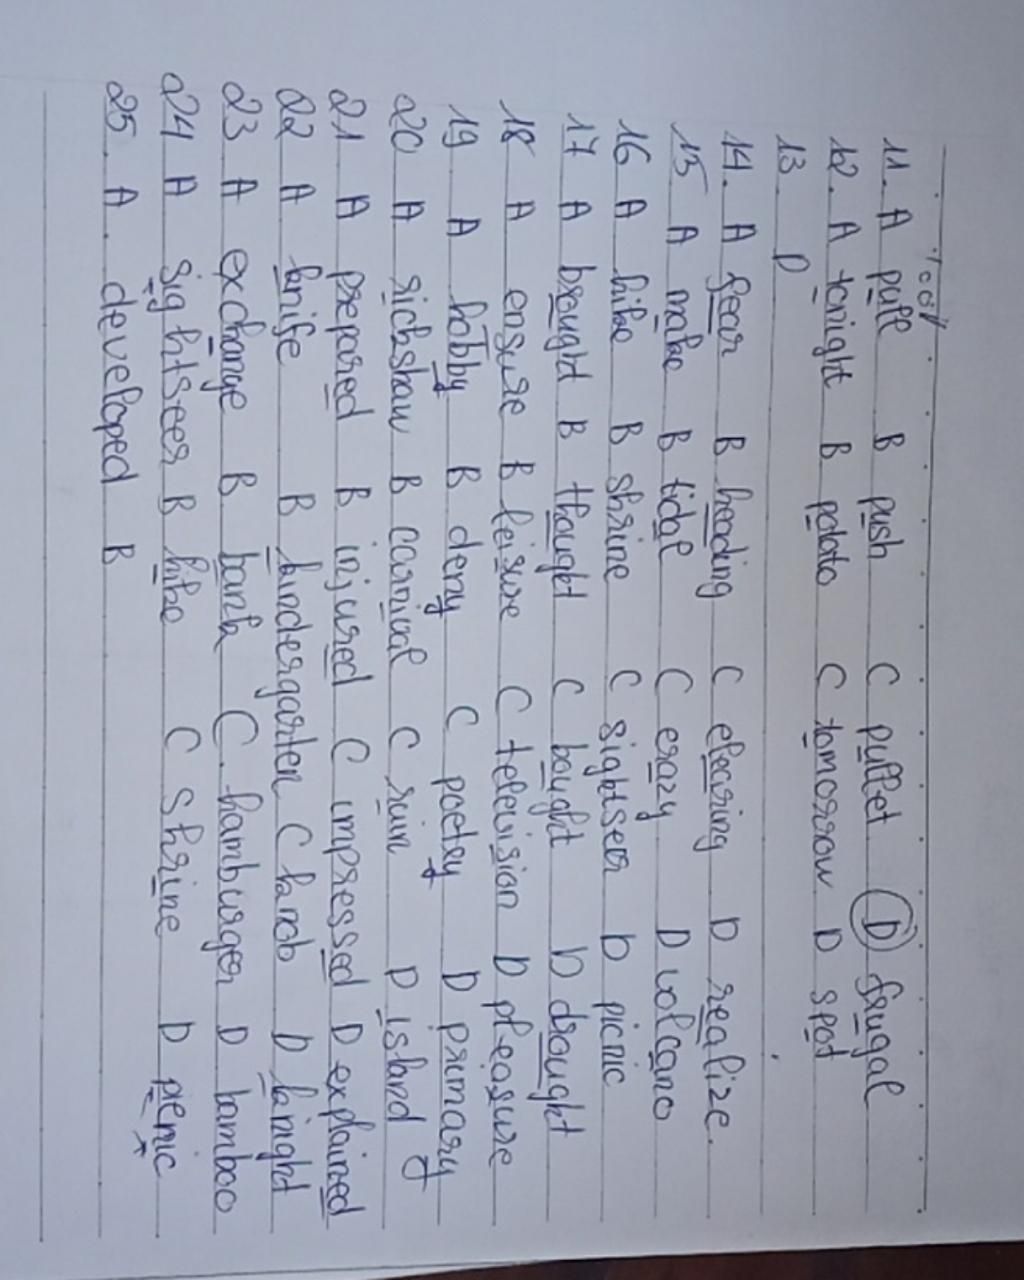 11. A pull B push C pullet D frugal
12. A tonight B potato C tomorrow D spot
13. D
14. A fear B heading C clearing D realize.
15 A make B tidal C erazy D volcano
16 A hike B shrine C sightseer D picnic
17 A brought B thought C bought D drought
18 A ensure B leisure C television D pleasure
19 A hobby B deny C poetry D primary
20 A rickshaw B carnival C ruin D island
21 A prepared B injured C impressed D explained
22 A knife B kindergarten C knob D knight
23 A exchange B bank C. hamburger D bamboo
24 A sightseer B hike C Shrine D picnic
25. A. developed B